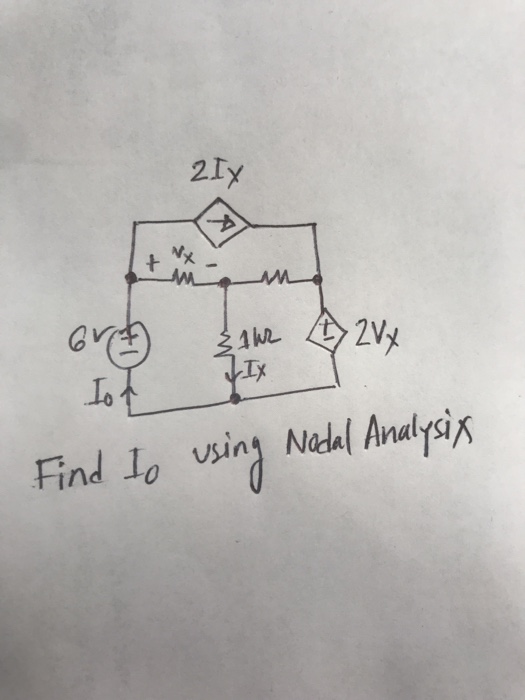 2Ix
+ Vx -
6v
1kΩ
2Vx
Ix
Io
Find Io using Nodal Analysix